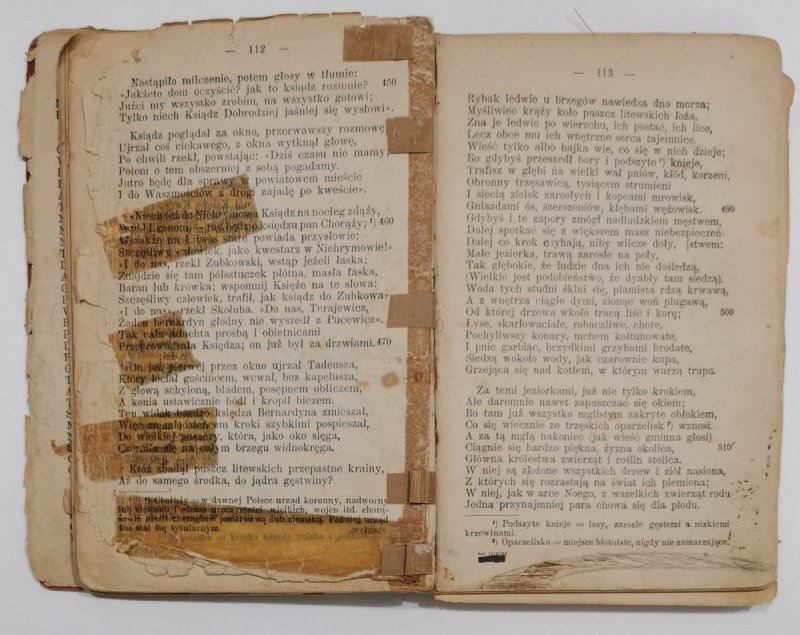 — 112 —
Nastąpiło milczenie, potem głosy w tłumie:
«Jakżeto dom oczyścić? jak to ksiądz rozumie? 450
Jużci my wszystko zrobim, na wszystko gotowi;
Tylko niech Ksiądz Dobrodziej jaśniej się wysłowi».
Ksiądz poglądał za okno, przerwawszy rozmowę,
Ujrzał coś ciekawego, z okna wytknął głowę,
Po chwili rzekł, powstając: «Dziś czasu nie mamy,
Potem o tem obszerniej z sobą pogadamy.
Jutro będę dla sprawy w powiatowem mieście
I do Waszmościów z drogi zajadę po kweście».
«Niechteż do Niehrymowa Ksiądz na nocleg zdąży,
Rzekł Ekonom, rad będzie księdzu pan Chorąży; ¹) 460
Wszakże na Litwie stare powiada przysłowie:
Szczęśliwy człowiek, jako kwestarz w Niehrymowie!»
«I do nas, rzekł Zubkowski, wstąp jeżeli łaska;
Znajdzie się tam półsztuczek płótna, masła faska,
Baran lub krówka; wspomnij Księże na te słowa:
Szczęśliwy człowiek, trafił, jak ksiądz do Zubkowa»
«I do nas», rzekł Skołuba. «Do nas, Terajewicz,
Żaden bernardyn głodny nie wyszedł z Pucewicz».
Tak cała szlachta prośbą i obietnicami
Przeprowadzała Księdza; on już był za drzwiami. 470
On już pierwej przez okno ujrzał Tadeusza,
Który leciał gościńcem, wcwał, bez kapelusza,
Z głową schyloną, bladem, posępnem obliczem,
A konia ustawicznie bódł i kropił biczem.
Ten widok bardzo księdza Bernardyna zmieszał,
Więc za młodzieńcem kroki szybkimi pospieszał,
Do wielkiej puszczy, która, jako oko sięga,
Czerniła się na całym brzegu widnokręga.
Któż zbadał puszcz litewskich przepastne krainy,
Aż do samego środka, do jądra gęstwiny?
¹) Chorąży = w dawnej Polsce urząd koronny, nadworny
lub ziemski. Podczas uroczystości wielkich, wojen itd. chorą-
żowie nieśli chorągiew państwową lub ziemską. Później urząd
ten stał się tytularnym.
= krótka kapota polska
— 113 —
Rybak ledwie u brzegów nawiedza dno morza;
Myśliwiec krąży koło puszcz litewskich łoża,
Zna je ledwie po wierzchu, ich postać, ich lice,
Lecz obce mu ich wnętrzne serca tajemnice.
Wieść tylko albo bajka wie, co się w nich dzieje;
Bo gdybyś przeszedł bory i podszyte ¹) knieje,
Trafisz w głębi na wielki wał pniów, kłód, korzeni,
Obronny trzęsawicą, tysiącem strumieni
I siecią zielsk zarosłych i kopcami mrowisk,
Gniazdami ós, szerszeniów, kłębami wężowisk. 490
Gdybyś i te zapory zmógł nadludzkiem męstwem,
Dalej spotkać się z większem masz niebezpieczeń-
Dalej co krok czyhają, niby wilcze doły, [stwem:
Małe jeziorka, trawą zarosłe na poły,
Tak głębokie, że ludzie dna ich nie dośledzą,
(Wielkie jest podobieństwo, że dyabły tam siedzą).
Woda tych studni sklni się, plamista rdzą krwawą,
A z wnętrza ciągle dymi, zionąc woń plugawą,
Od której drzewa wkoło tracą liść i korę;
Łyse, skarłowaciałe, robaczliwe, chore, 500
Pochyliwszy konary, mchem kołtunowate,
I pnie garbiąc, brzydkimi grzybami brodate,
Siedzą wokoło wody, jak czarownic kupa,
Grzejąca się nad kotłem, w którym warzą trupa.
Za temi jeziorkami, już nie tylko krokiem,
Ale daremnie nawet zapuszczać się okiem;
Bo tam już wszystko mglistym zakryte obłokiem,
Co się wiecznie ze trzęskich oparzelisk ²) wznosi.
A za tą mgłą nakoniec (jak wieść gminna głosi)
Ciągnie się bardzo piękna, żyzna okolica, 510
Główna królestwa zwierząt i roślin stolica.
W niej są złożone wszystkich drzew i ziół nasiona,
Z których się rozrastają na świat ich plemiona;
W niej, jak w arce Noego, z wszelkich zwierząt rodu
Jedna przynajmniej para chowa się dla płodu.
¹) Podszyte knieje = lasy, zarosłe gęstemi a nizkiemi
krzewinami.
²) Oparzelisko = miejsce błotniste, nigdy nie zamarzające.
PAN TADEUSZ. 8